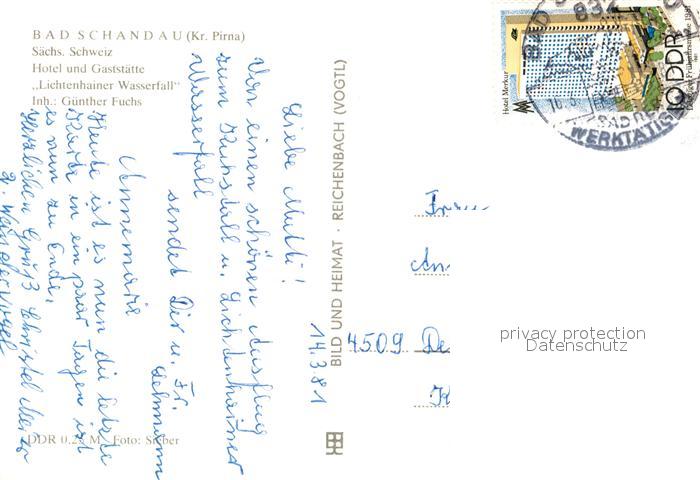 BAD SCHANDAU (Kr. Pirna)
Sächs. Schweiz
Hotel und Gaststätte
„Lichtenhainer Wasserfall"
Inh.: Günther Fuchs
14.3.81
Liebe Mutti!
Von einen schönen Ausflug
zum Kuhstall u. Lichtenhainer
Wasserfall
sendet Dir u. Fr. Lehmann
Annemarie
Heute ist es nun die letzte
Karte in ein paar Tagen ist
es nun zu Ende.
Herzlichen Gruß Christel
DDR 0.25 M Foto: Sieber
BILD UND HEIMAT · REICHENBACH (VOGTL)
Hotel Merkur
10 DDR
WERKTÄTIG
Frau
An
4509 De
privacy protection
Datenschutz